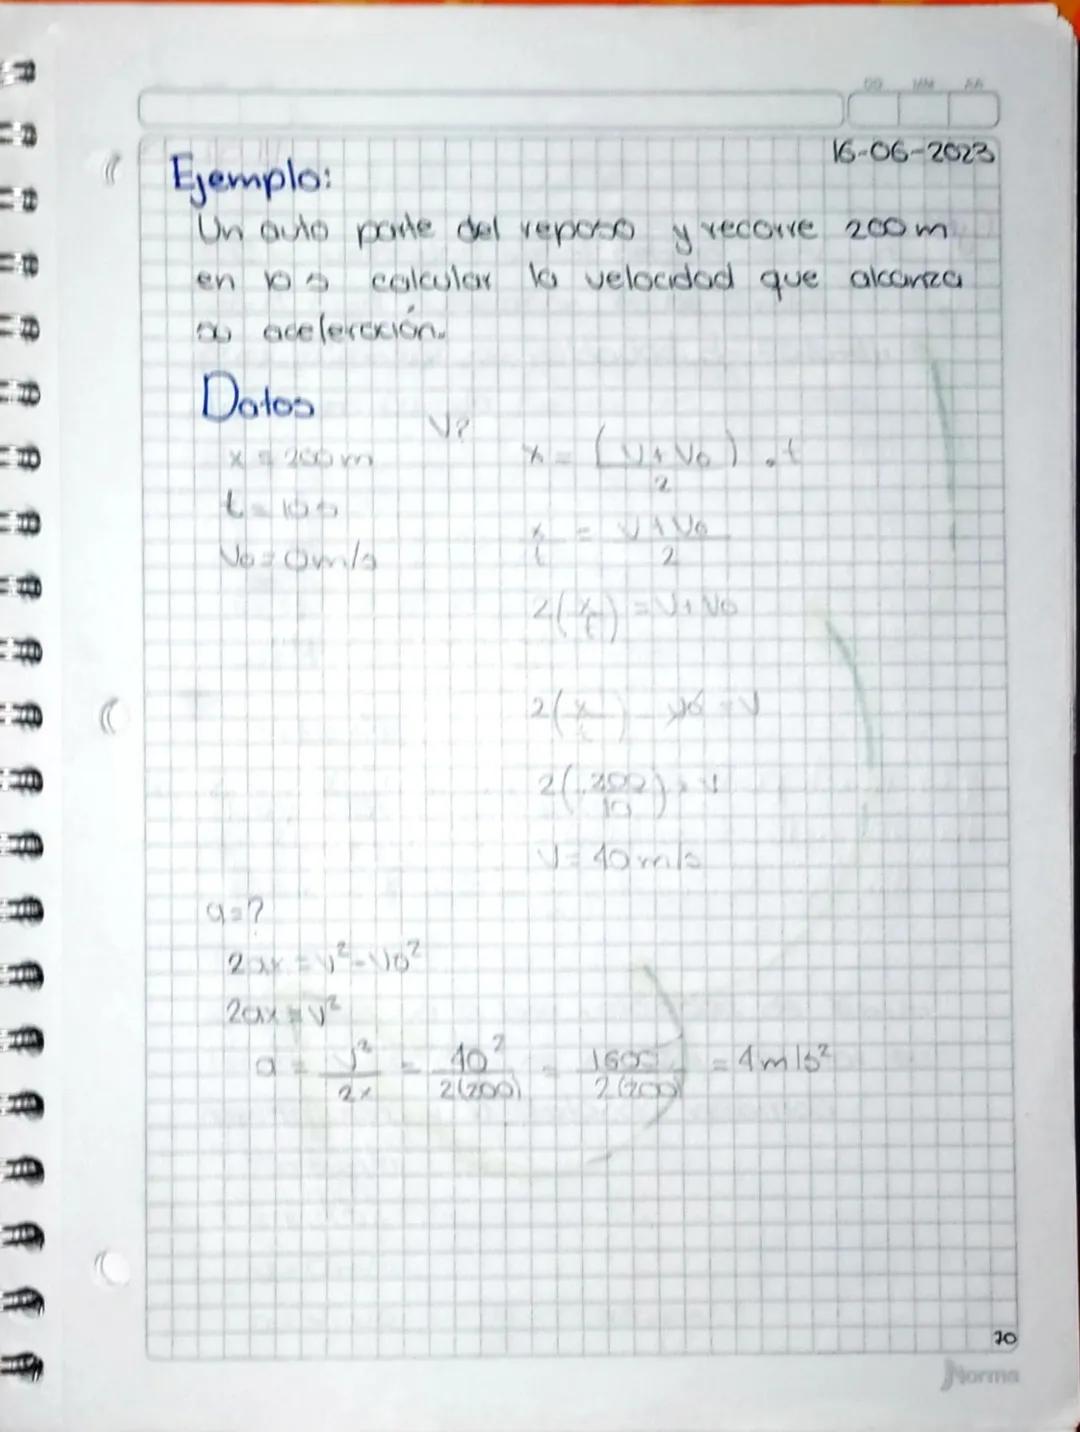 DD MM AA
16-06-2023
Ejemplo:
Un auto parte del reposo y recorre 200 m
en 10 s calcular la velocidad que alcanza
su aceleración.
Datos
V?
x = 200 m
t = 10 s
Vo = 0 m/s
x = (V + Vo / 2) . t
x/t = V + Vo / 2
2(x/t) = V + Vo
2(x/t) - Vo = V
2(200/10) = V
V = 40 m/s
a = ?
2ax = V² - Vo²
2ax = V²
a = V²/2x = 40²/2(200) = 1600/2(200) = 4 m/s²
70
Norma